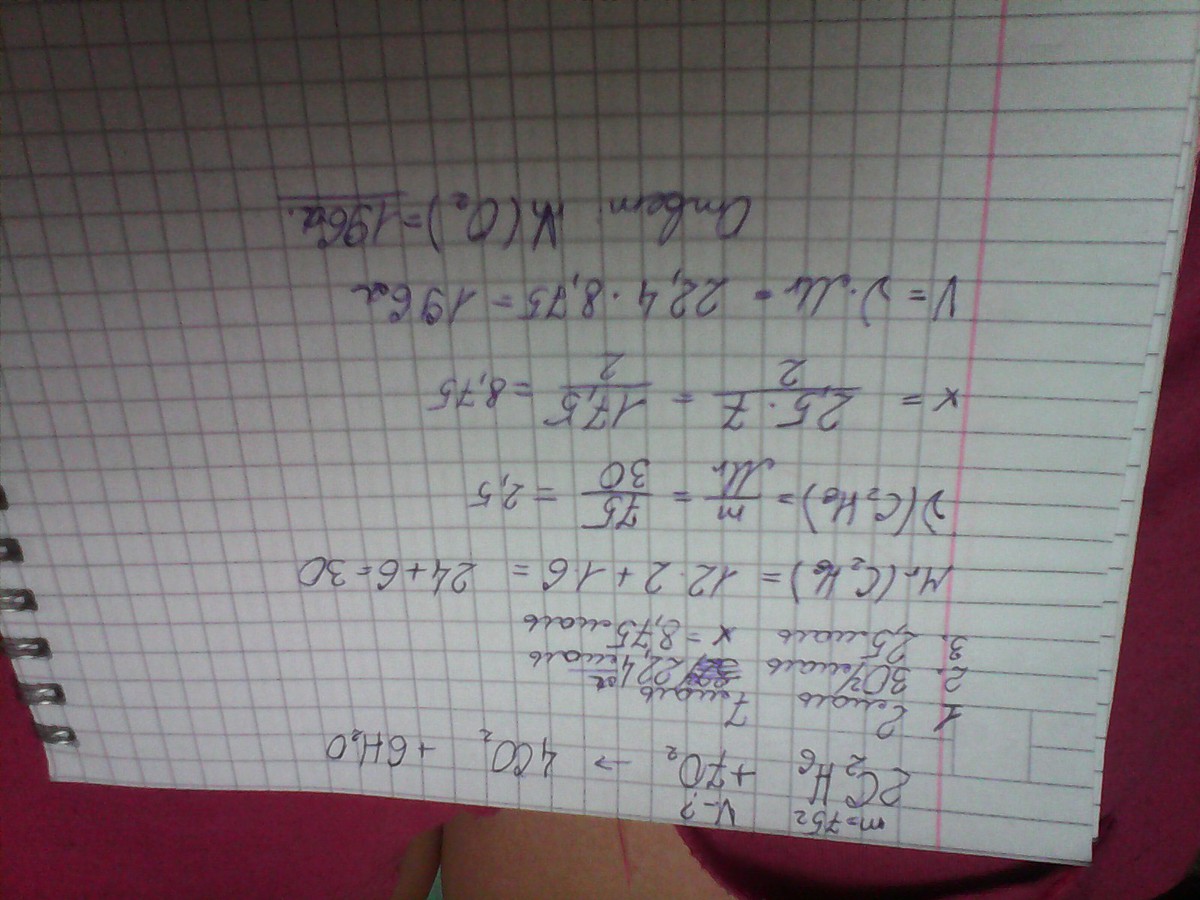 m=75г V-?
2C₂H₆ +7O₂ → 4CO₂ +6H₂O
1. 2моль 7моль
2. 30г/моль 22,4л/моль
3. 2,5моль x=8,75моль
Mr(C₂H₆)= 12·2+1·6 = 24+6=30
ν(C₂H₆)= m/Mr = 75/30 = 2,5
x = 2,5·7/2 = 17,5/2 =8,75
V=ν·Mr= 22,4·8,75=196л
Ответ: V(O₂)=196л.